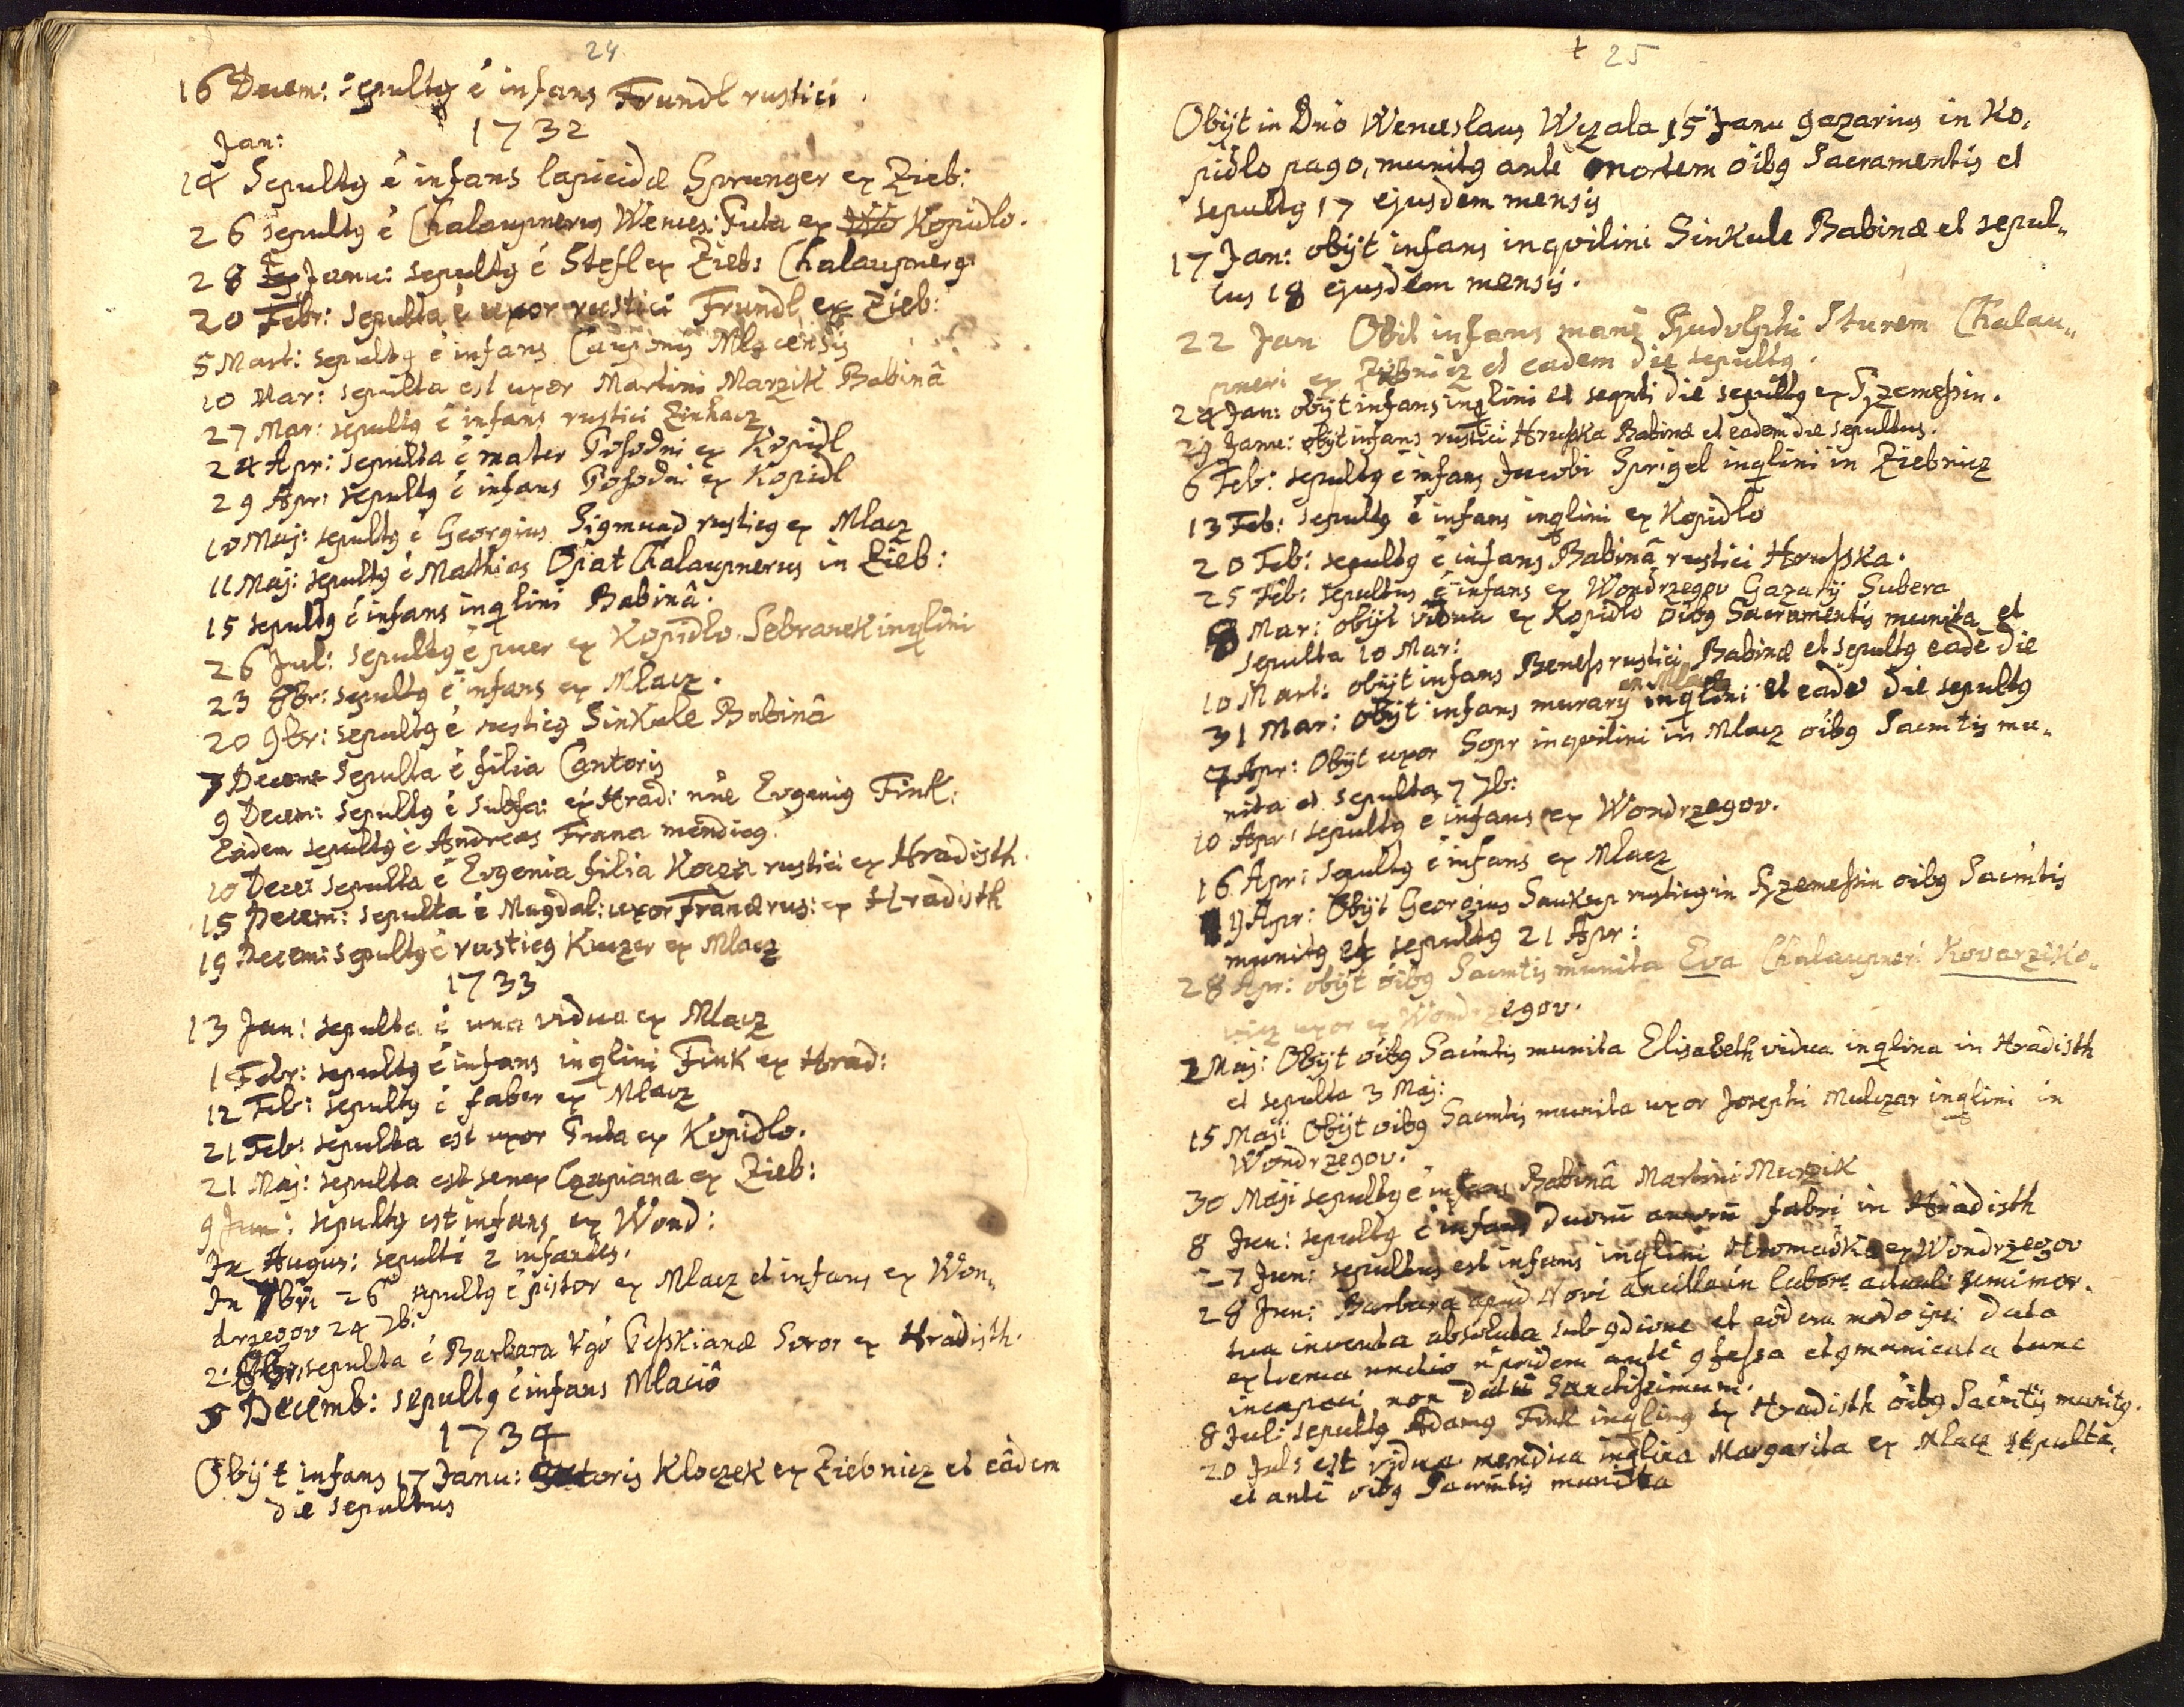 24
16 Decem: sepultg ē infans Frundl rustici.
1732
Jan:
14 Sepultg ē infans lapicidæ Sprunger ex Zieb:
26 sepultg ē Chalaupnerus Wences: Puta ex Kopidlo.
28 Janu: sepultg ē Stefl ex Ziebs Chalaupnerg
20 Febr: sepulta ē uxor rustici Frundl ex Zieb:
5 Mart: sepultg ē infans Cauponis Mlacensis
10 Mar: sepulta est uxor Martini Marzik Babinâ
27 Mar: sepultg ē infans rustici Zinkacz
24 Apr: sepulta ē mater Pohodni ex Kopidl
29 Apr: sepultg ē infans Pohodni ex Kopidl
10 Maj: sepultg ē Georgius Sigmund rusticg ex Mlacz
11 Maj: sepultg ē Mathias Opat Chalaupnerus in Zieb:
15 sepultg ē infans inqlini Babinâ.
26 Jul: sepultg ē puer ex Kopidlo Sebranek inqlini
23 8br: sepultg ē infans ex Mlacz.
20 9br: sepultg ē rusticg Sinkule Babinâ
7 Decem sepulta ē filia Cantoris
9 Decem: sepultg ē ex Hrad: Evgenig Fink:
Eadem sepultg ē Andreas Frana mendicg.
10 Decem sepulta ē Evgenia filia rustici ex Hradisth.
15 Decem: sepulta ē Magdal: uxor Franæ rus: ex Hradisth
19 Decem: sepultg ē rusticg Kuczer ex Mlacz
1733
13 Jan: sepulta ē una vidua ex Mlacz
1 Febr: sepultg ē infans inqlini Fink ex Hrad:
12 Feb: sepultg ē faber ex Mlacz
21 Feb: sepulta est uxor Puta ex Kopidlo.
21 Maj: sepulta est senex Czapiana ex Zieb:
9 Jun: sepultg est infans ex Wond:
In Augus: sepulti 2 infantes.
In 7bri 26 sepultg ē pistor ex Mlacz et infans ex Won„
drzegov 24 7b:
2 8br: sepulta ē Barbara Vgo Peskianæ Soror ex Hradisth.
5 Decemb: sepultg ē infans Mlaciô
1734
Obijt infans 17 Janu: Kloczek ex Ziebnicz et eâdem
die sepultus
25
Obijt in Dno Wenceslaus Wczala 15 Janu gazarius in Ko,
pidlo pago, munitg ante mortem oibg Sacramentis et
sepultg 17 ejusdem mensis
17 Jan: obijt infans inqvilini Sinkule Babinæ et sepul„
tus 18 ejusdem mensis.
22 Jan Obit infans manè Rudolphi Sturem Chalau„
pneri ex Ziebnicz et eadem die sepultg.
24 Jan: obijt infans inqlini et seqnti die sepultg ex Przemeßin.
29 Janu: obijt infans rustici Hrußka Babinæ et eadem die sepultus.
6 Feb: sepultg ē infans Jacobi Sprigel inqlini in Ziebnicz
13 Feb: sepultg ē infans inqlini ex Kopidlo
20 Feb: sepultg ē infans Babinâ rustici Hrußka.
25 Feb: sepultus ē infans ex Wondrzegov Gazarij Subera
8 Mar: obijt vidua ex Kopidlo oibg Sacramentis munita et
sepulta 10 Mar:
10 Mart: obijt infans Beneß rustici Babinæ et sepultg eadē die
31 Mar: obijt infans murarij ex Mlacz inqlini et eadē die sepultg
7 Apr: Obijt uxor Sopr inqvilini in Mlacz oibg Sacmtis mu„
nita et sepulta 7 7b:
10 Apr: sepultg ē infans ex Wondrzegov.
16 Apr: sepultg ē infans ex Mlacz
19 Apr: Obijt Georgius Saukup rusticg in Przemeßin oibg Sacmtis
munitg et sepultg 21 Apr:
28 Apr: obijt oibg Sacmtis munita Eva Chalaupneri Kovarziko„
vicz uxor ex Wondrzegov.
2 Maj: Obijt oibg Sacmtis munita Elisabeth vidua inqlina in Hradisth
et sepulta 3 Maj:
15 Maji Obijt oibg Sacmtis munita uxor Josephi Mulczar inqlini in
Wondrzegov.
30 Maji sepultg ē infans Babinâ Martini Marzik
8 Jun: sepultg ē infans duorū annorū fabri in Hradisth
27 Jun: sepultus est infans inqlini Hromadka ex Wondrzegov
28 Jun: Barbara apud Novi ancilla in labore actuali semimor.
tua inventa absoluta sub gdione et eôdem modo ipsi data
extrema unctio n pridem ante gfessa et gmunicata tunc
incapaci non datū Sanctissimum.
8 Jul: sepultg Adamg Fink inqling ex Hradisth oibg Sacmtis munitg.
20 Juls est vidua mendica inqlina Margarita ex Mlacz sepulta,
et antè oibg Sacmtis munita